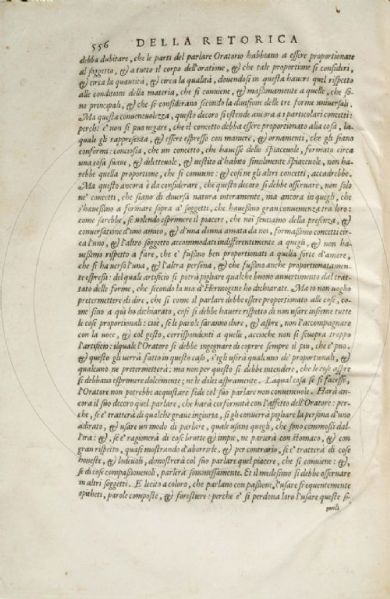 556 DELLA RETORICA
debba dubitare, che le parti del parlare Oratorio habbiano a essere proportionate
al soggetto, & a tutto il corpo dell'oratione, & che tale proportione si consideri,
& circa la quantità, & circa la qualità, dovendosi in questa haveri quel rispetto
alle conditioni della materia, che si conviene, & massimamente a quelle, che so-
no principali, & che si considerano secondo la divisione delle tre forme universali.
Ma questa convenevolezza, questo decoro si estende ancora a i particolari concetti:
perche è non si può negare, che il concetto debba essere proportionato alla cosa, la
quale gli rappresenta, & essere espresso con maniere, & ornamenti, che gli siano
conformi: conciosia, che un concetto, che havesse dello spiacevole, formato circa
una cosa suave, & dilettevole, & vestito d'habito similmente spiacevole, non ha-
rebbe quella proportione, che si conviene: & così ne gli altri concetti, accadrebbe.
Ma questo ancora è da considerare, che questo decoro si debbe osservare, non solo
ne' concetti, che siano di diversa natura interamente, ma ancora in quegli, che
s'havessino a formare sopra a' soggetti, che havessino gran convenienza tra loro:
come sarebbe, se volendo esprimere il piacere, che noi sentiamo della presenza, &
conversatione d'uno amico, & d'una donna amata da noi, formassimo concetti cir-
ca l'uno, & l'altro soggetto accommodati indifferentemente a quegli, & non ha-
vessimo rispetto a fare, che e' fussino ben proportionati a quella sorte d'amore,
che si ha verso l'una, & l'altra persona, & che fussino anche proportionatamen-
te espressi: del quale artificio si potrà pigliare qualche buono avvertimento dal trat-
tato delle forme, che secondo la via d'Hermogene ho dichiarate. Ma io non voglio
pretermettere di dire, che si come il parlare debbe essere proportionato alle cose, co-
me sino a qui ho dichiarato, così si debbe havere rispetto di non usare insieme tutte
le cose proportionali: cioè, se le parole saranno dure, & aspre, non l'accompagnare
con la voce, & col gesto, corrispondenti a quelle, accioche non si scuopra troppo
l'artificio: il quale l'Oratore si debbe ingegnare di coprire sempre il più, che e' può,
& questo gli verrà fatto in questo caso, s'egli userà qualcuno de' proportionali, &
qualcuno ne pretermetterà: ma non per questo si debbe intendere, che le cose aspre
si debbano esprimere dolcemente; ne le dolci aspramente. La qual cosa se si facesse,
l'Oratore non potrebbe acquistare fede col suo parlare non convenevole. Harà an-
cora il suo decoro quel parlare, che harà conformità con l'affetto dell'Oratore: per-
che, se e' tratterà di qualche grave ingiuria, se gli converrà pigliare la persona d'uno
adirato, & usare un modo di parlare, quale usano quegli, che sono commossi dal-
l'ira: &, se e' ragionerà di cose brutte & impie, ne parlerà con stomaco, & con
gran rispetto, quasi mostrando d'aborrirle. & per contrario, se e' tratterà di cose
honeste, & lodevoli, dimostrerrà col suo parlare quel piacere, che si conviene: &,
se di cose compassionevoli, parlerà sommessamente. Et il medesimo si debbe osservare
in altri soggetti. E lecito a coloro, che parlano con passione, l'usare frequentemente
epiteti, parole composte, & forestiere: perche e' si perdona loro l'usare queste si-
mili